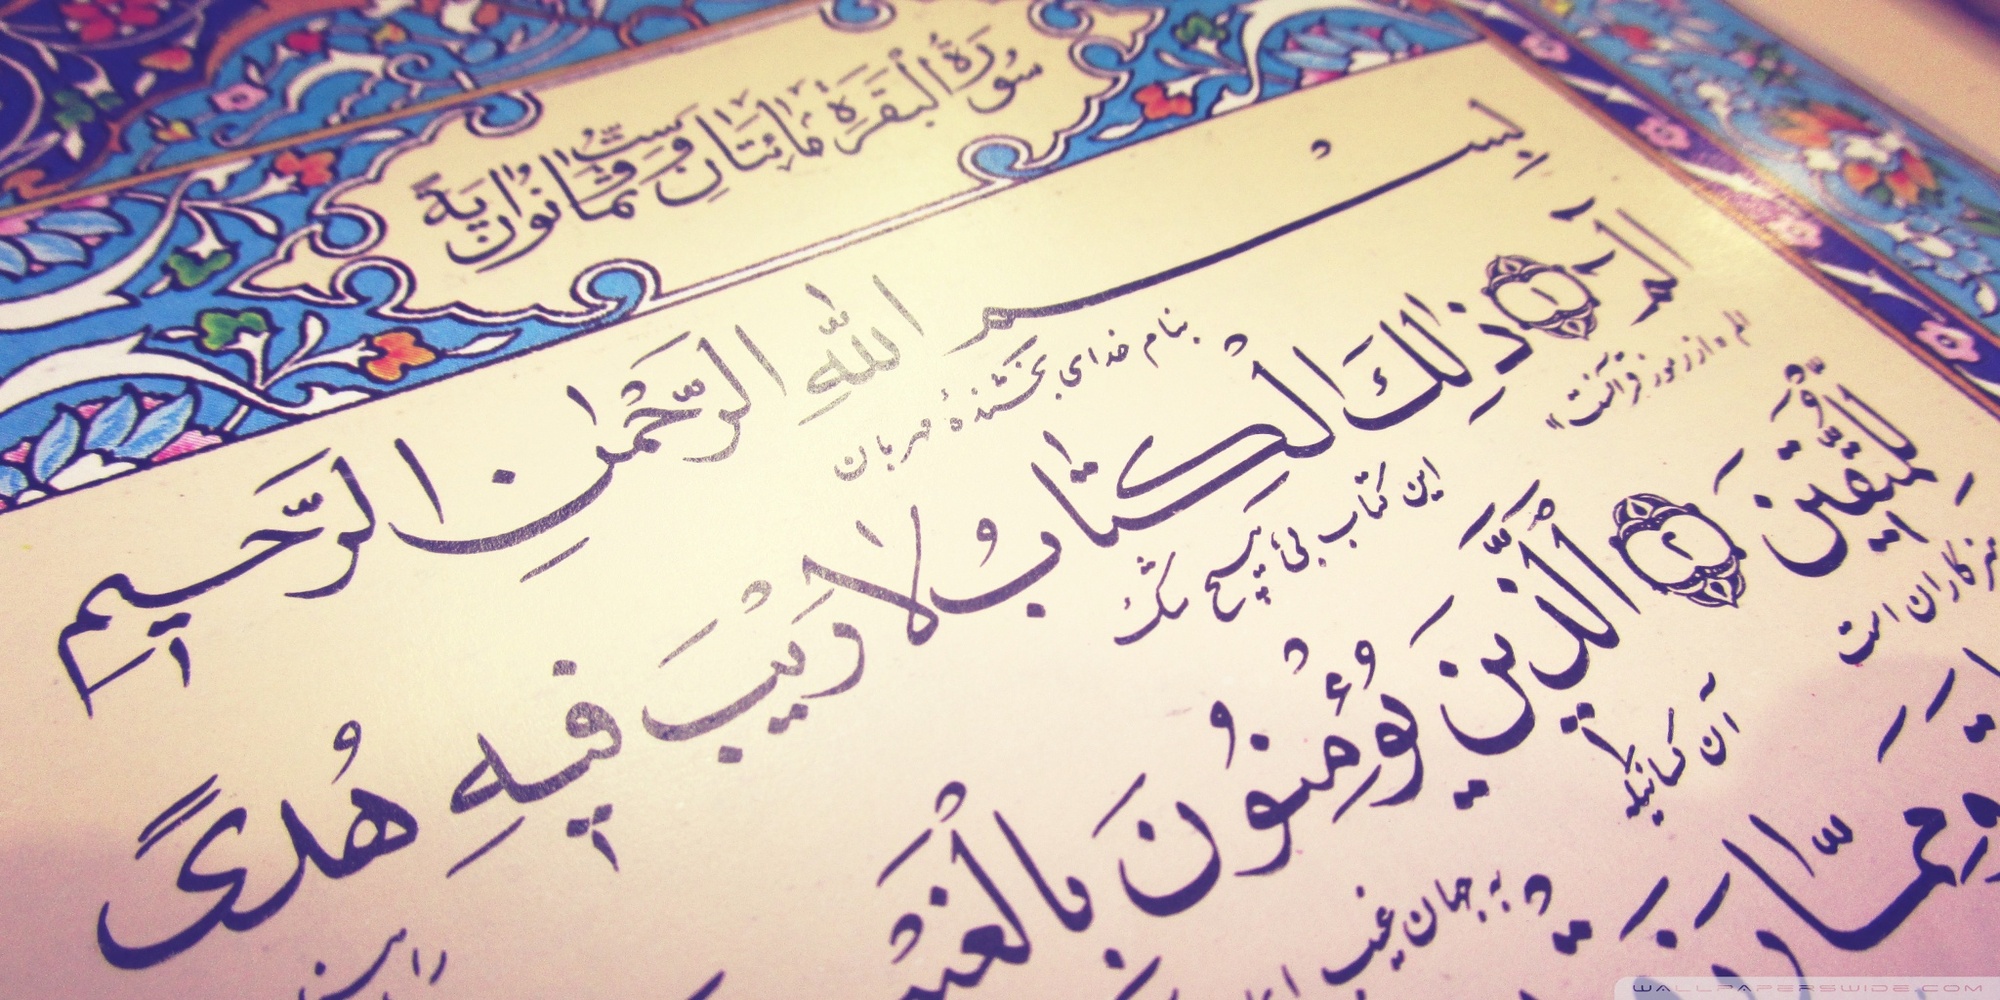 سُورَةُ الْبَقَرَةِ مِائَتَانِ وَسِتٌّ وَثَمَانُونَ آيَةً
بِسْمِ اللّٰهِ الرَّحْمٰنِ الرَّحِيمِ
بنام خدای بخشندهٔ مهربان
الٓمٓ ١ ذٰلِكَ الْكِتَابُ لَا رَيْبَ فِيهِ هُدًى
الم از رموز قرآنست
این کتاب بی هیچ شک
لِلْمُتَّقِينَ ٢ اَلَّذِينَ يُؤْمِنُونَ بِالْغَيْبِ
کاران است آن کسانیکه به جهان غیب
WALLPAPERSWIDE.COM